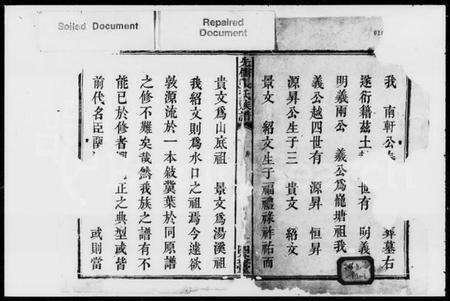 Soiled Document
Repaired
Document
我 南軒公
葬墓右
遂衍籍茲土
世有 明義
明義兩公 義公為龍塘祖我
義公越四世有 源昇 恒昇
源昇公生子三 貴文 紹文
景文 紹文生子福禮祿祥祐而
貴文為山底祖 景文為湯溪祖
我紹文則為水口之祖焉今遽欲
敦源流於一本敘蓂葉於同原譜
之修不難矣哉然我族之譜有不
能已於修者
正之典型或皆
前代名臣
或則當